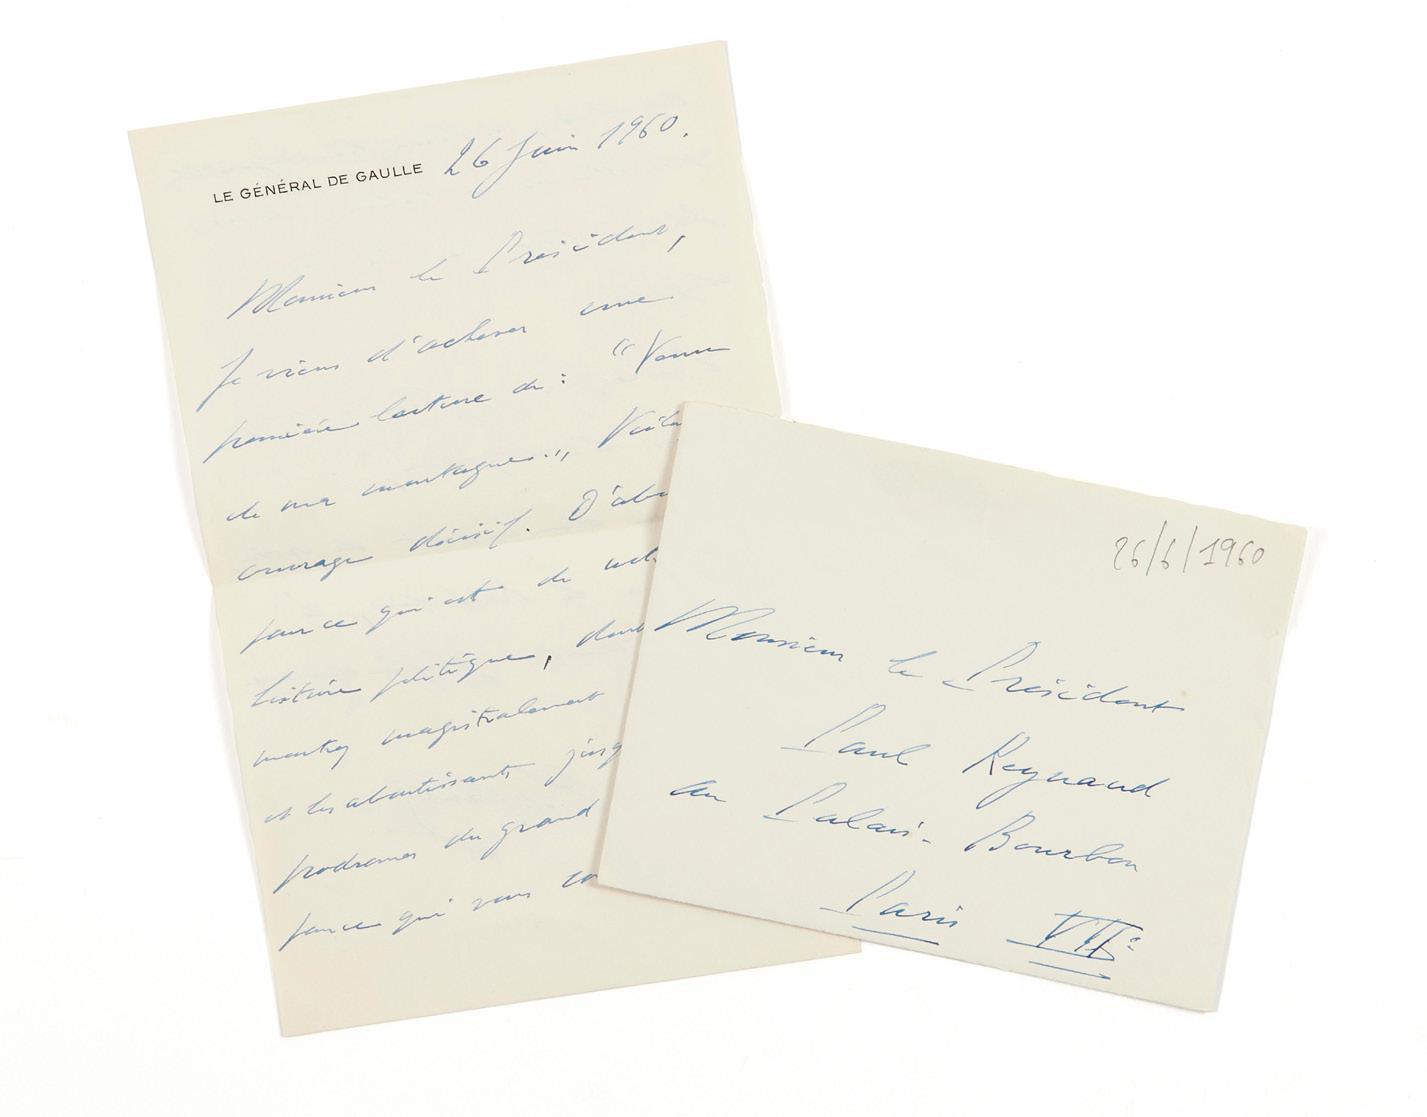 LE GÉNÉRAL DE GAULLE 26 Juin 1960.
Monsieur le Président,
Je viens d'achever une
première lecture de : "Venu
de ma montagne." Voilà
ouvrage décisif. D'abo
pour ce qui est de
histoire politique, dont
montrez magistralement
et les aboutissants jusq
prodromes du grand
pour ce qui vous co
26/6/1960
Monsieur le Président
Paul Reynaud
au Palais-Bourbon
Paris VIIe